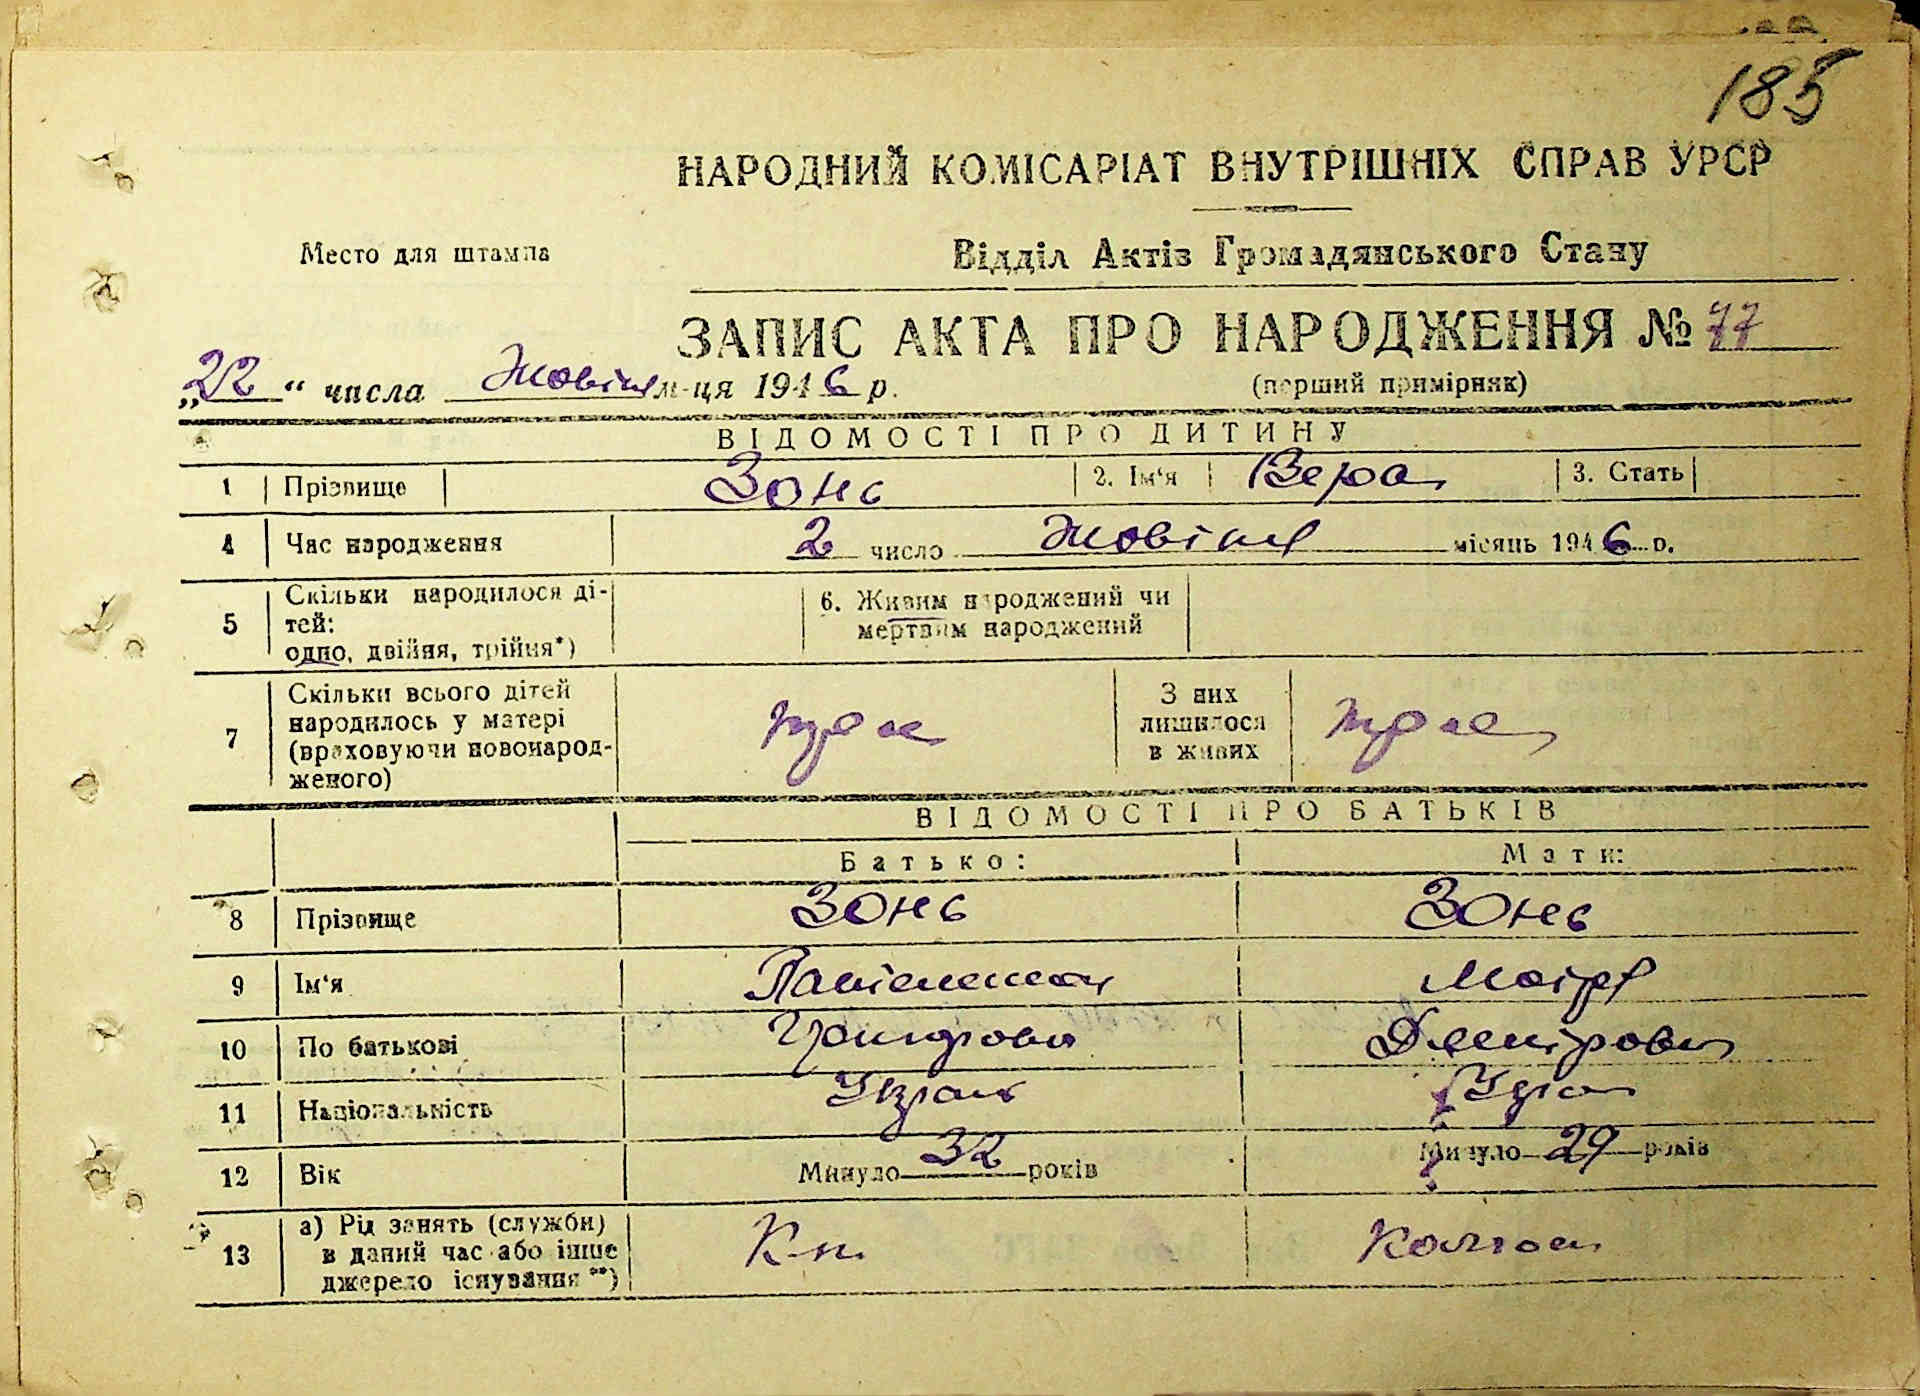 185
НАРОДНИЙ КОМІСАРІАТ ВНУТРІШНІХ СПРАВ УРСР
Место для штампа
Відділ Актів Громадянського Стану
ЗАПИС АКТА ПРО НАРОДЖЕННЯ № 77
„22“ числа Жовтня м-ця 1946 р.
(перший примірник)
ВІДОМОСТІ ПРО ДИТИНУ
1 Прізвище Зонь 2. Ім‘я Вера 3. Стать
4 Час народження 2 число Жовтня місяць 1946 р.
5 Скільки народилося ді-
тей:
одно, двійня, трійня*)
6. Живим народжений чи
мертвим народжений
7 Скільки всього дітей
народилось у матері
(враховуючи новонарод-
женого)
троє
З них
лишилося
в живих
троє
ВІДОМОСТІ ПРО БАТЬКІВ
Батько: Мати:
8 Прізвище Зонь Зонь
9 Ім‘я Марія
10 По батькові
11 Національність Укра
12 Вік Минуло 32 років Минуло 29 років
13 а) Рід занять (служби)
в даний час або інше
джерело існування **)